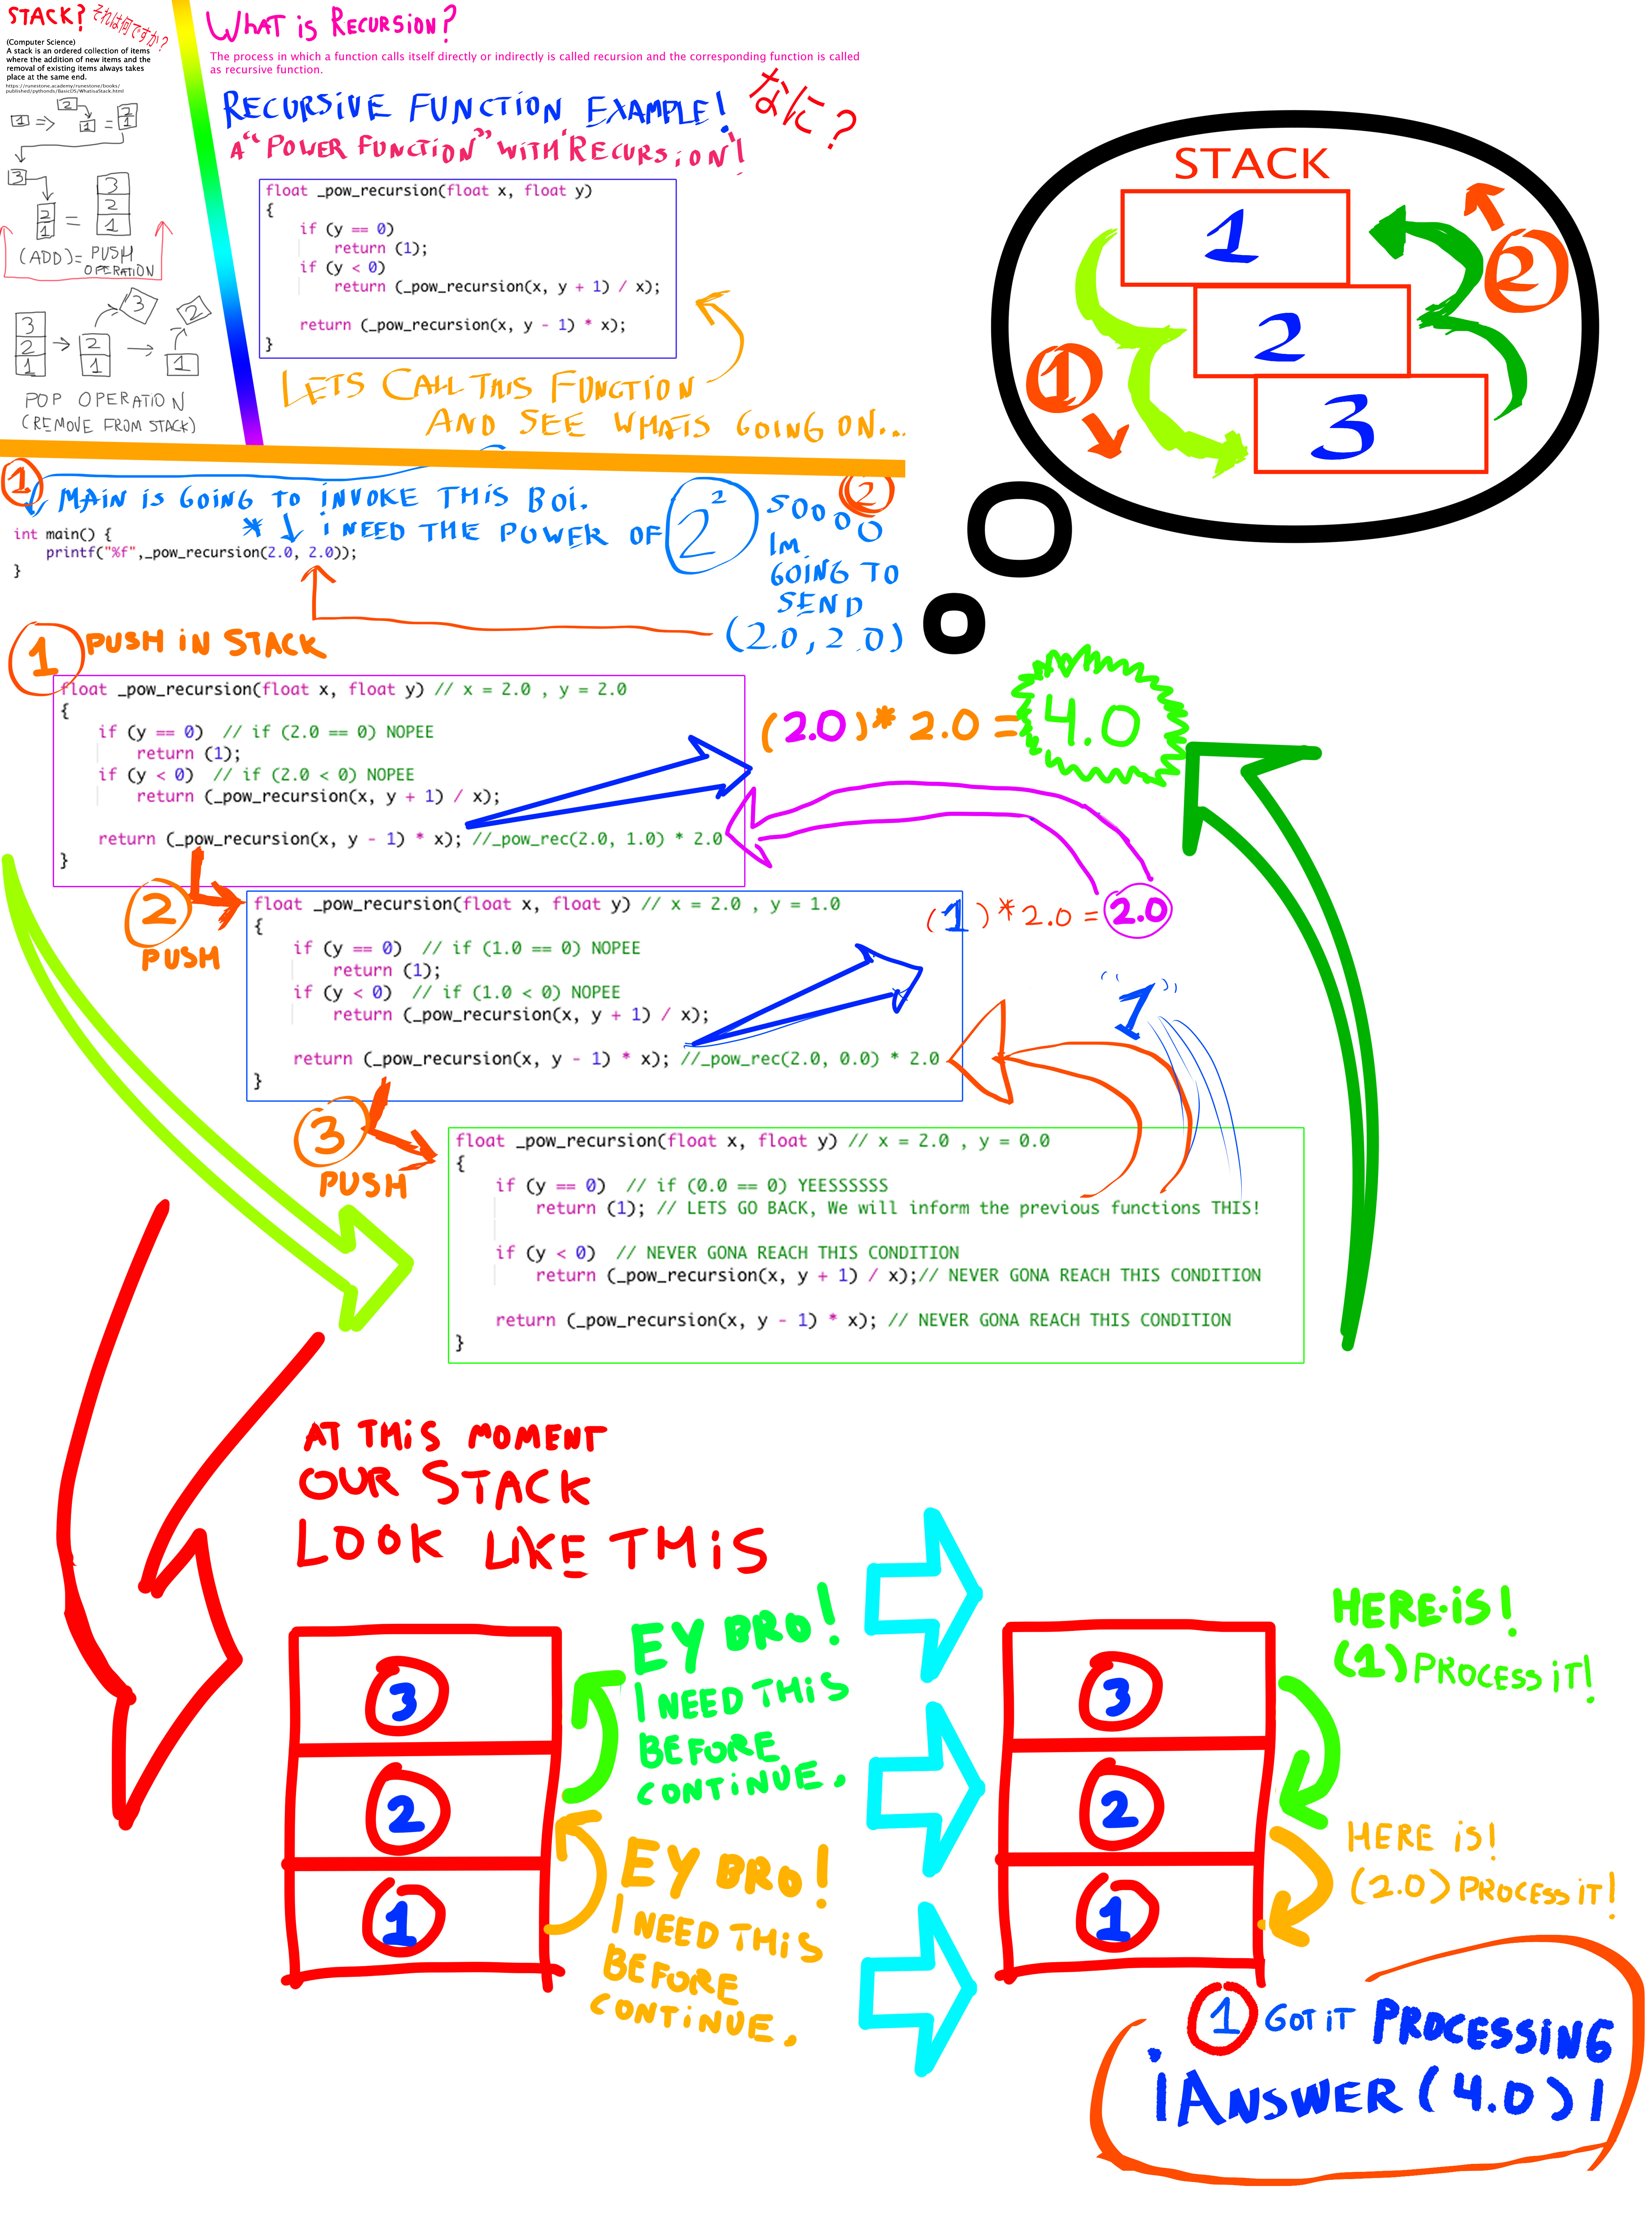 STACK? それは何ですか?
(Computer Science)
A stack is an ordered collection of items
where the addition of new items and the
removal of existing items always takes
place at the same end.
https://runestone.academy/runestone/books/
published/pythonds/BasicDS/WhatisaStack.html
1 => 2 1 = 2 1
3
2 1 = 3 2 1
(ADD) = PUSH
OPERATION
3 2 1 → 2 1 3 → 1 2
POP OPERATION
(REMOVE FROM STACK)
WHAT iS RECURSiON?
The process in which a function calls itself directly or indirectly is called recursion and the corresponding function is called
as recursive function.
RECURSIVE FUNCTION EXAMPLE! なに?
A "POWER FUNCTiON" WiTH 'RECURSiON'!
float _pow_recursion(float x, float y)
{
if (y == 0)
return (1);
if (y < 0)
return (_pow_recursion(x, y + 1) / x);
return (_pow_recursion(x, y - 1) * x);
}
LETS CALL THIS FUNCTION
AND SEE WHATS GOING ON...
STACK
1
2
3
1
2
1 MAiN iS GOiNG TO iNVOKE THiS BOi.
* i NEED THE POWER OF 2²
2
SOOOOO
IM
GOING TO
SEND
(2.0, 2.0)
int main() {
printf("%f",_pow_recursion(2.0, 2.0));
}
1 PUSH iN STACK
float _pow_recursion(float x, float y) // x = 2.0 , y = 2.0
{
if (y == 0) // if (2.0 == 0) NOPEE
return (1);
if (y < 0) // if (2.0 < 0) NOPEE
return (_pow_recursion(x, y + 1) / x);
return (_pow_recursion(x, y - 1) * x); //_pow_rec(2.0, 1.0) * 2.0
}
(2.0)* 2.0 = 4.0
2
PUSH
float _pow_recursion(float x, float y) // x = 2.0 , y = 1.0
{
if (y == 0) // if (1.0 == 0) NOPEE
return (1);
if (y < 0) // if (1.0 < 0) NOPEE
return (_pow_recursion(x, y + 1) / x);
return (_pow_recursion(x, y - 1) * x); //_pow_rec(2.0, 0.0) * 2.0
}
(1)*2.0 = 2.0
"1"
3
PUSH
float _pow_recursion(float x, float y) // x = 2.0 , y = 0.0
{
if (y == 0) // if (0.0 == 0) YEESSSSSS
return (1); // LETS GO BACK, We will inform the previous functions THIS!
if (y < 0) // NEVER GONA REACH THIS CONDITION
return (_pow_recursion(x, y + 1) / x);// NEVER GONA REACH THIS CONDITION
return (_pow_recursion(x, y - 1) * x); // NEVER GONA REACH THIS CONDITION
}
AT THiS MOMENT
OUR STACK
LOOK LIKE THiS
3
2
1
EY BRO!
I NEED THiS
BEFORE
CONTiNUE.
EY BRO!
I NEED THiS
BEFORE
CONTiNUE.
3
2
1
HERE iS!
(1) PROCESS iT!
HERE iS!
(2.0) PROCESS iT!
1 GOT iT PROCESSiNG
¡ANSWER (4.0)!